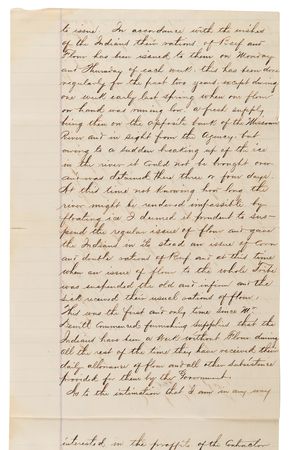 to issue. In accordance with the wishes
of the Indians their rations of Beef and
Flour has been issued to them on Monday
and Thursday of each week. this has been done
regularly for the past two years except during
one week early last spring when our flour
on hand was running low a fresh supply
being then on the opposite bank of the Missouri
River and in sight from the Agency. but
owing to a sudden breaking up of the ice
in the river it could not be brought over
and was detained there three or four days.
At this time not knowing how long the
river might be rendered impassible by
floating ice I deemed it prudent to sus-
pend the regular issue of flour and gave
the Indians in its stead an issue of corn
and double rations of Beef and at this time
when an issue of flour to the whole Tribe
was suspended the old and infirm and the
sick received their usual rations of flour.
This was the first and only time since Mr
commenced furnishing supplies that the
Indians have been a week without Flour during
all the rest of the time they have received their
daily allowance of flour and all other subsistance
provided for them by the Government.
As to the intimation that I am in any way
interested in the proffits of the Contractor